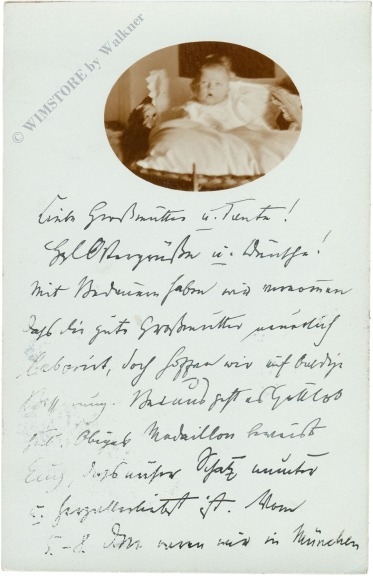 © WIMSTORE by Walkner
Liebe Großmutter u. Tante!
Hzl Ostergrüße u. Wünsche!
Mit Bedauern haben wir vernommen
daß die gute Großmutter neuerlich
doch hoffen wir auf baldige
Besserung. Bei uns geht es Gottlob
gut. Obiges Medaillon beweist
Euch, daß unser Schatz munter
u. herzallerliebst ist. Vom
5.-8. waren wir in München